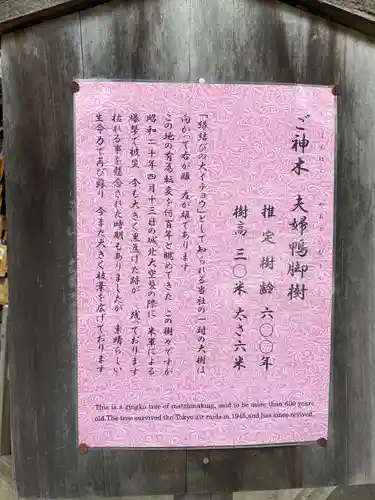 ご神木 夫婦鴨脚樹
推定樹齢 六〇〇年
樹高 三〇米 太さ六米
「縁結びの大イチョウ」として知られる当社の一対の大樹は
向かって右が雄 左が雌であります
この地の有為転変を何百年と眺めてきた この樹々ですが
昭和二十年四月十三日の城北大空襲の際に 米軍による
爆撃で被災 今も大きく黒焦げた跡が 残っております
枯れる事を懸念された時期もありましたが 素晴らしい
生命力で再び蘇り 今また大きく枝葉を広げております
This is a gingko tree of matchmaking, said to be more than 600 years
old.The tree survived the Tokyo air raids in 1945,and has since revived.